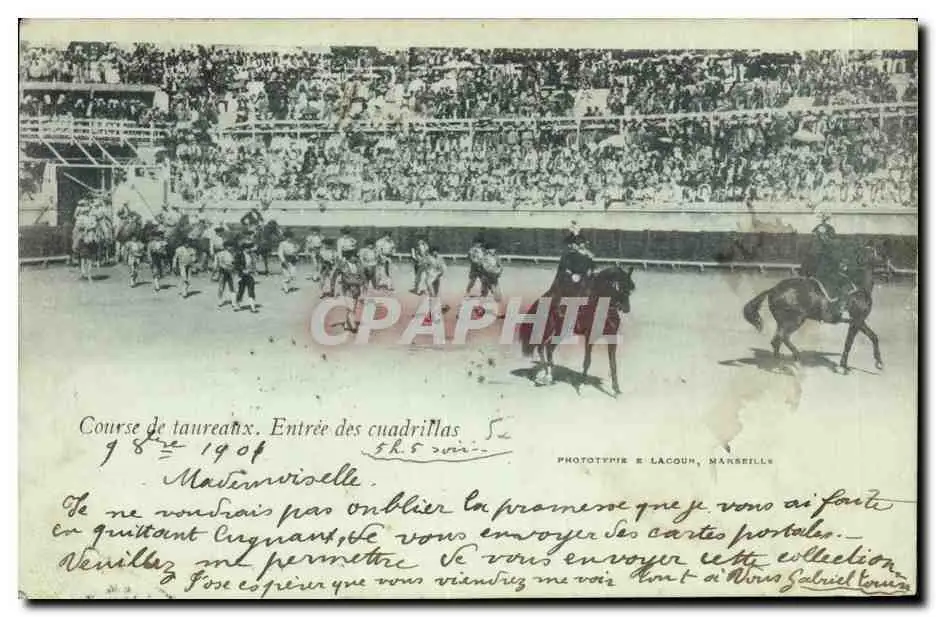 CPAPHIL.COM
Course de taureaux. Entrée des cuadrillas
9 8bre 1901 5h.5 soir
PHOTOTYPIE E LACOUR, MARSEILLE
Mademoiselle.
Je ne voudrais pas oublier la promesse que je vous ai faite
en quittant de vous envoyer des cartes postales.
Veuillez me permettre de vous envoyer cette collection
J'ose espérer que vous viendrez me voir tout à Vous Gabriel